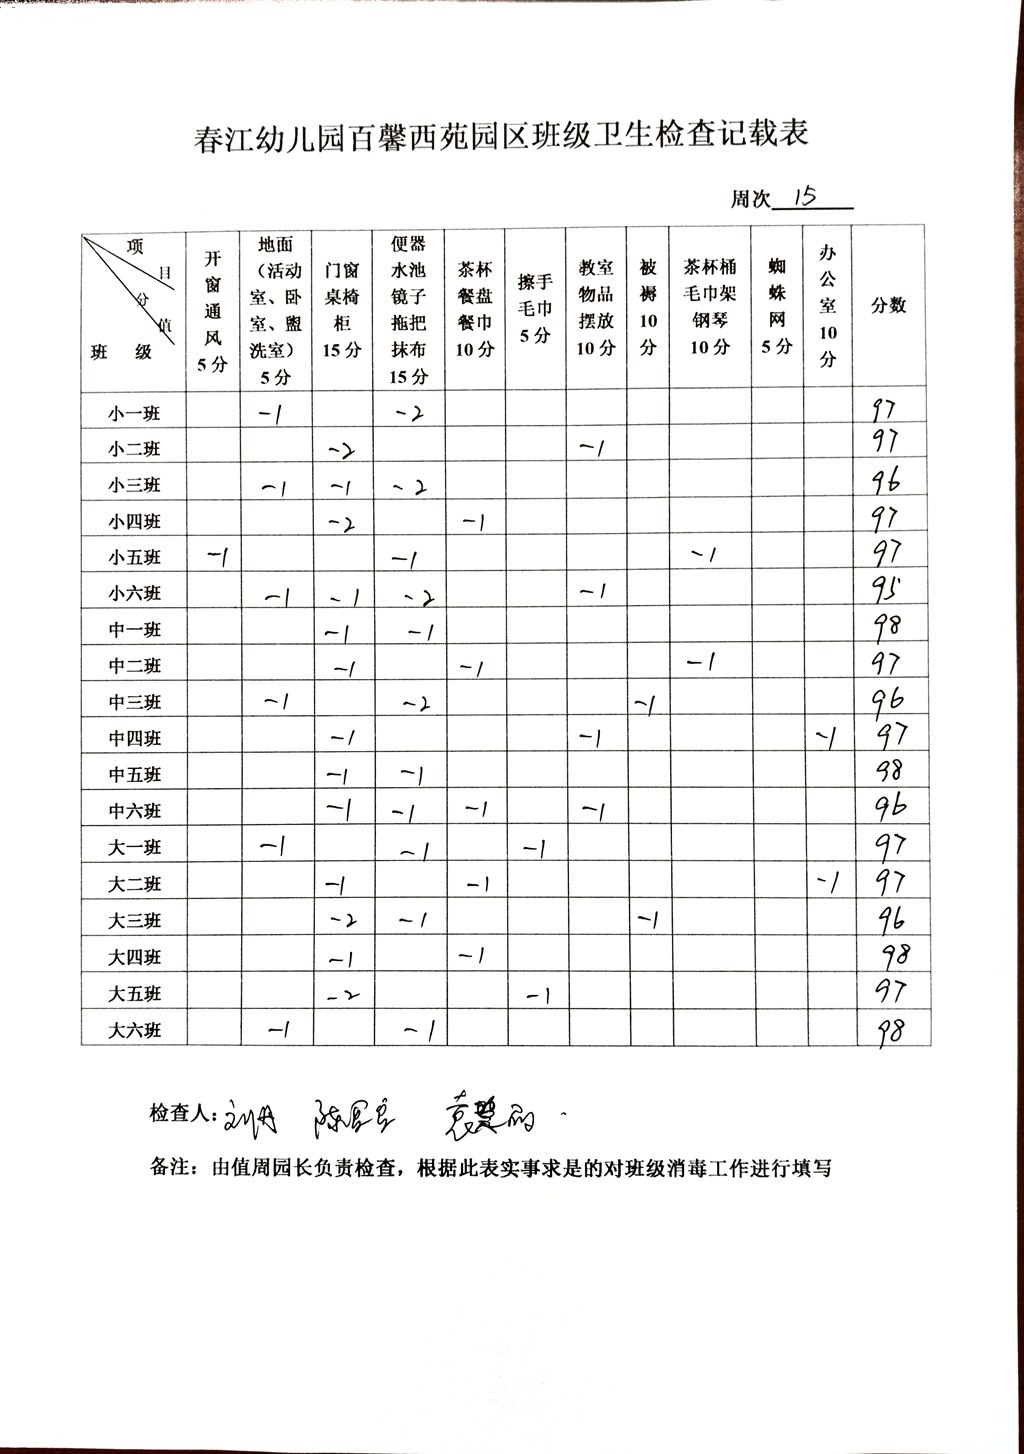 春江幼儿园百馨西苑园区班级卫生检查记载表
周次 15
项目 分值 班级 开窗通风5分 地面（活动室、卧室、盥洗室）5分 门窗桌椅柜15分 便器水池镜子拖把抹布15分 茶杯餐盘餐巾10分 擦手毛巾5分 教室物品摆放10分 被褥10分 茶杯桶毛巾架钢琴10分 蜘蛛网5分 办公室10分 分数
小一班 -1 -2 97
小二班 -2 -1 97
小三班 -1 -1 -2 96
小四班 -2 -1 97
小五班 -1 -1 -1 97
小六班 -1 -1 -2 -1 95
中一班 -1 -1 98
中二班 -1 -1 -1 97
中三班 -1 -2 -1 96
中四班 -1 -1 -1 97
中五班 -1 -1 98
中六班 -1 -1 -1 -1 96
大一班 -1 -1 -1 97
大二班 -1 -1 -1 97
大三班 -2 -1 -1 96
大四班 -1 -1 98
大五班 -2 -1 97
大六班 -1 -1 98
检查人: 刘丹
备注：由值周园长负责检查，根据此表实事求是的对班级消毒工作进行填写